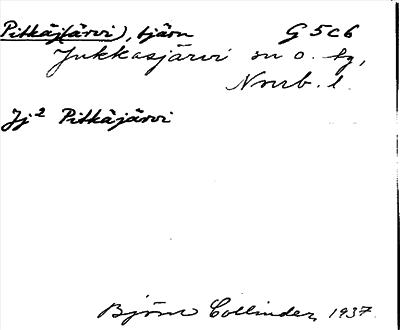 Pitkäj(ärvi), tjärn G 5 c 6
Jukkasjärvi sn o. tg,
Norrb. l.
Jj² Pitkäjärvi
Björn Collinder, 1937